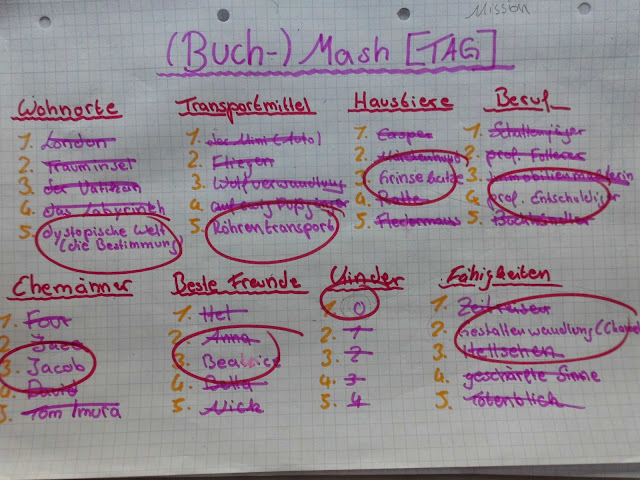 Mission
(Buch-) Mash [TAG]
Wohnorte
1. London
2. Trauminsel
3. der Vatikan
4. das Labyrinth
5. dystopische Welt
(die Bestimmung)
Transportmittel
1. der Mini (Auto)
2. Fliegen
3. Wolfverwandlung
4. auf
5. Röhrentransport
Haustiere
1. Casper
2.
3. Grinsekatze
4. Ratte
5. Fledermaus
Beruf
1. Schattenjäger
2. prof. Folterer
3. Immobilienmaklerin
4. prof. Entschuldiger
5. Buchhändler
Ehemänner
1. Four
2. Jace
3. Jacob
4. David
5. Tom Imura
Beste Freunde
1. Hel
2. Anna
3. Beatrice
4. Bella
5. Nick
Kinder
1. 0
2. 1
3. 2
4. 3
5. 4
Fähigkeiten
1. Zeitreisen
2. Gestaltenwandlung
3. Hellsehen
4. geschärfte Sinne
5. Totenblick